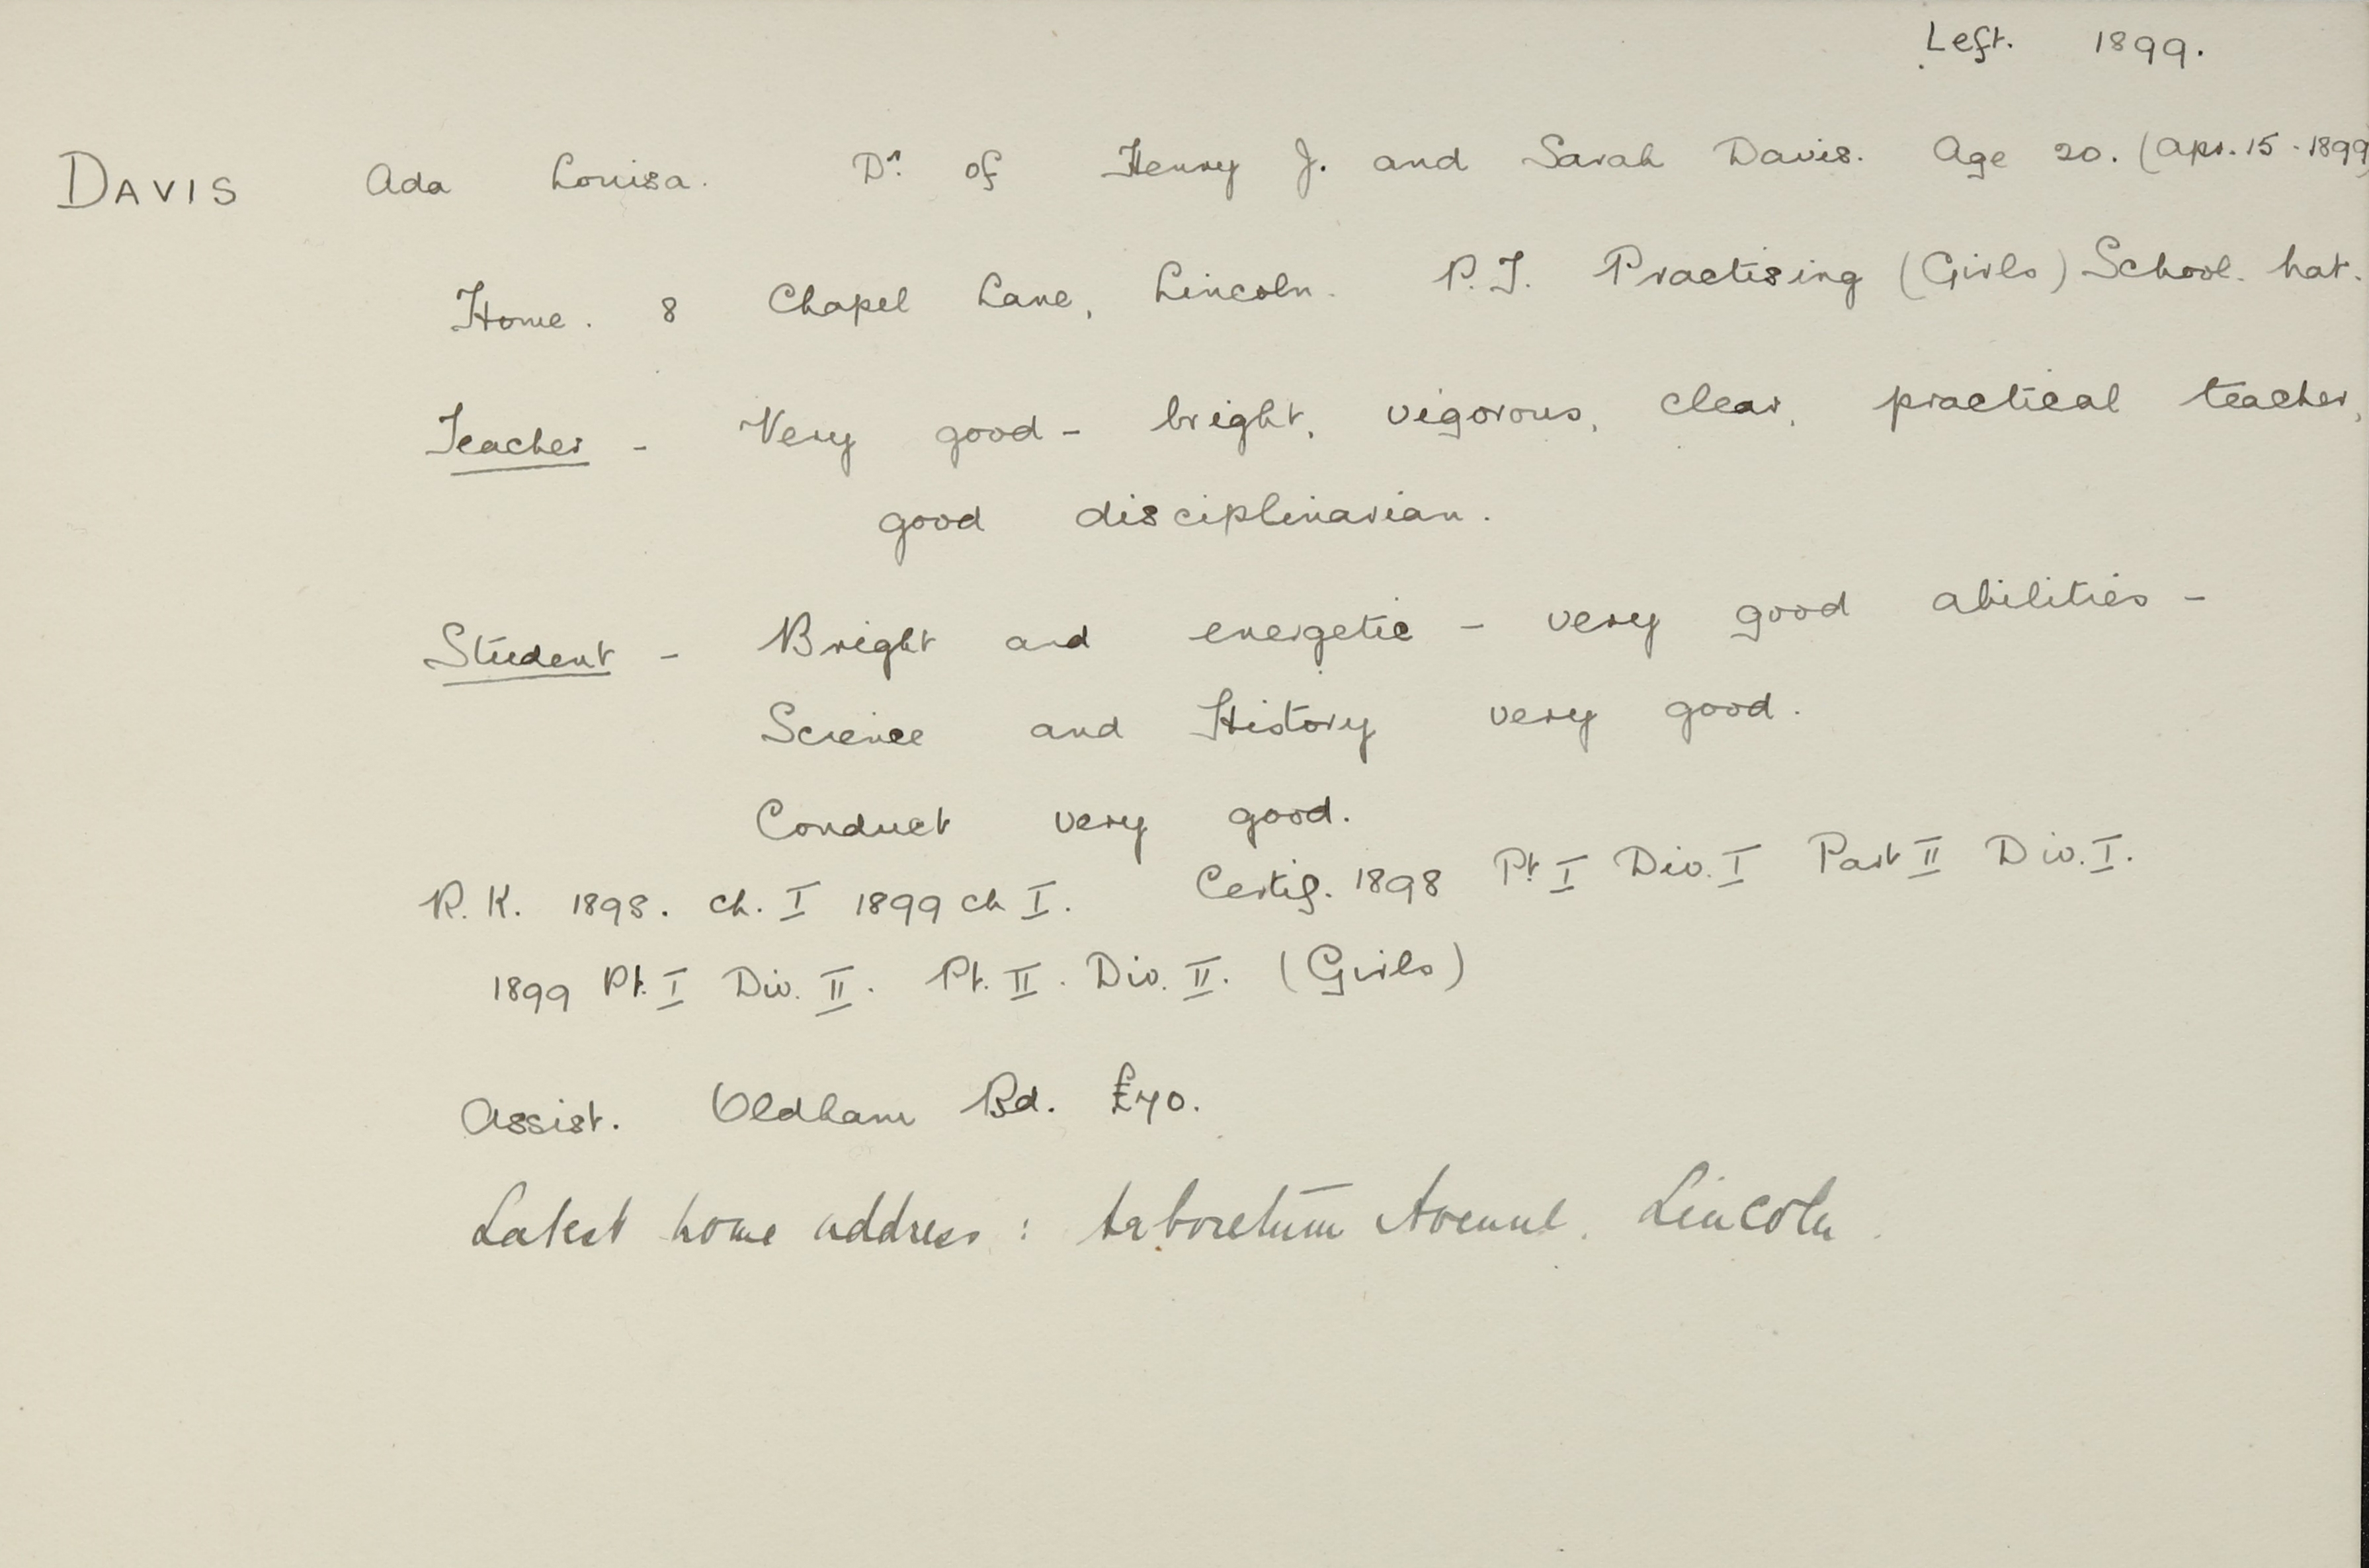 Left. 1899.
DAVIS Ada Louisa. Dr. of Henry J. and Sarah Davis. Age 20. (Apr. 15. 1899)
Home. 8 Chapel Lane, Lincoln. P.T. Practising (Girls) School. Nat.
Teacher - Very good - bright, vigorous, clear, practical teacher,
good disciplinarian.
Student - Bright and energetic - very good abilities -
Science and History very good.
Conduct very good.
R.K. 1898. Ch. I 1899 Ch I. Certif. 1898 Pt I Div. I Part II Div. I.
1899 Pt. I Div. II. Pt. II. Div. II. (Girls)
Assist. Oldham Bd. £70.
Latest home address: Arboretum Avenue. Lincoln.